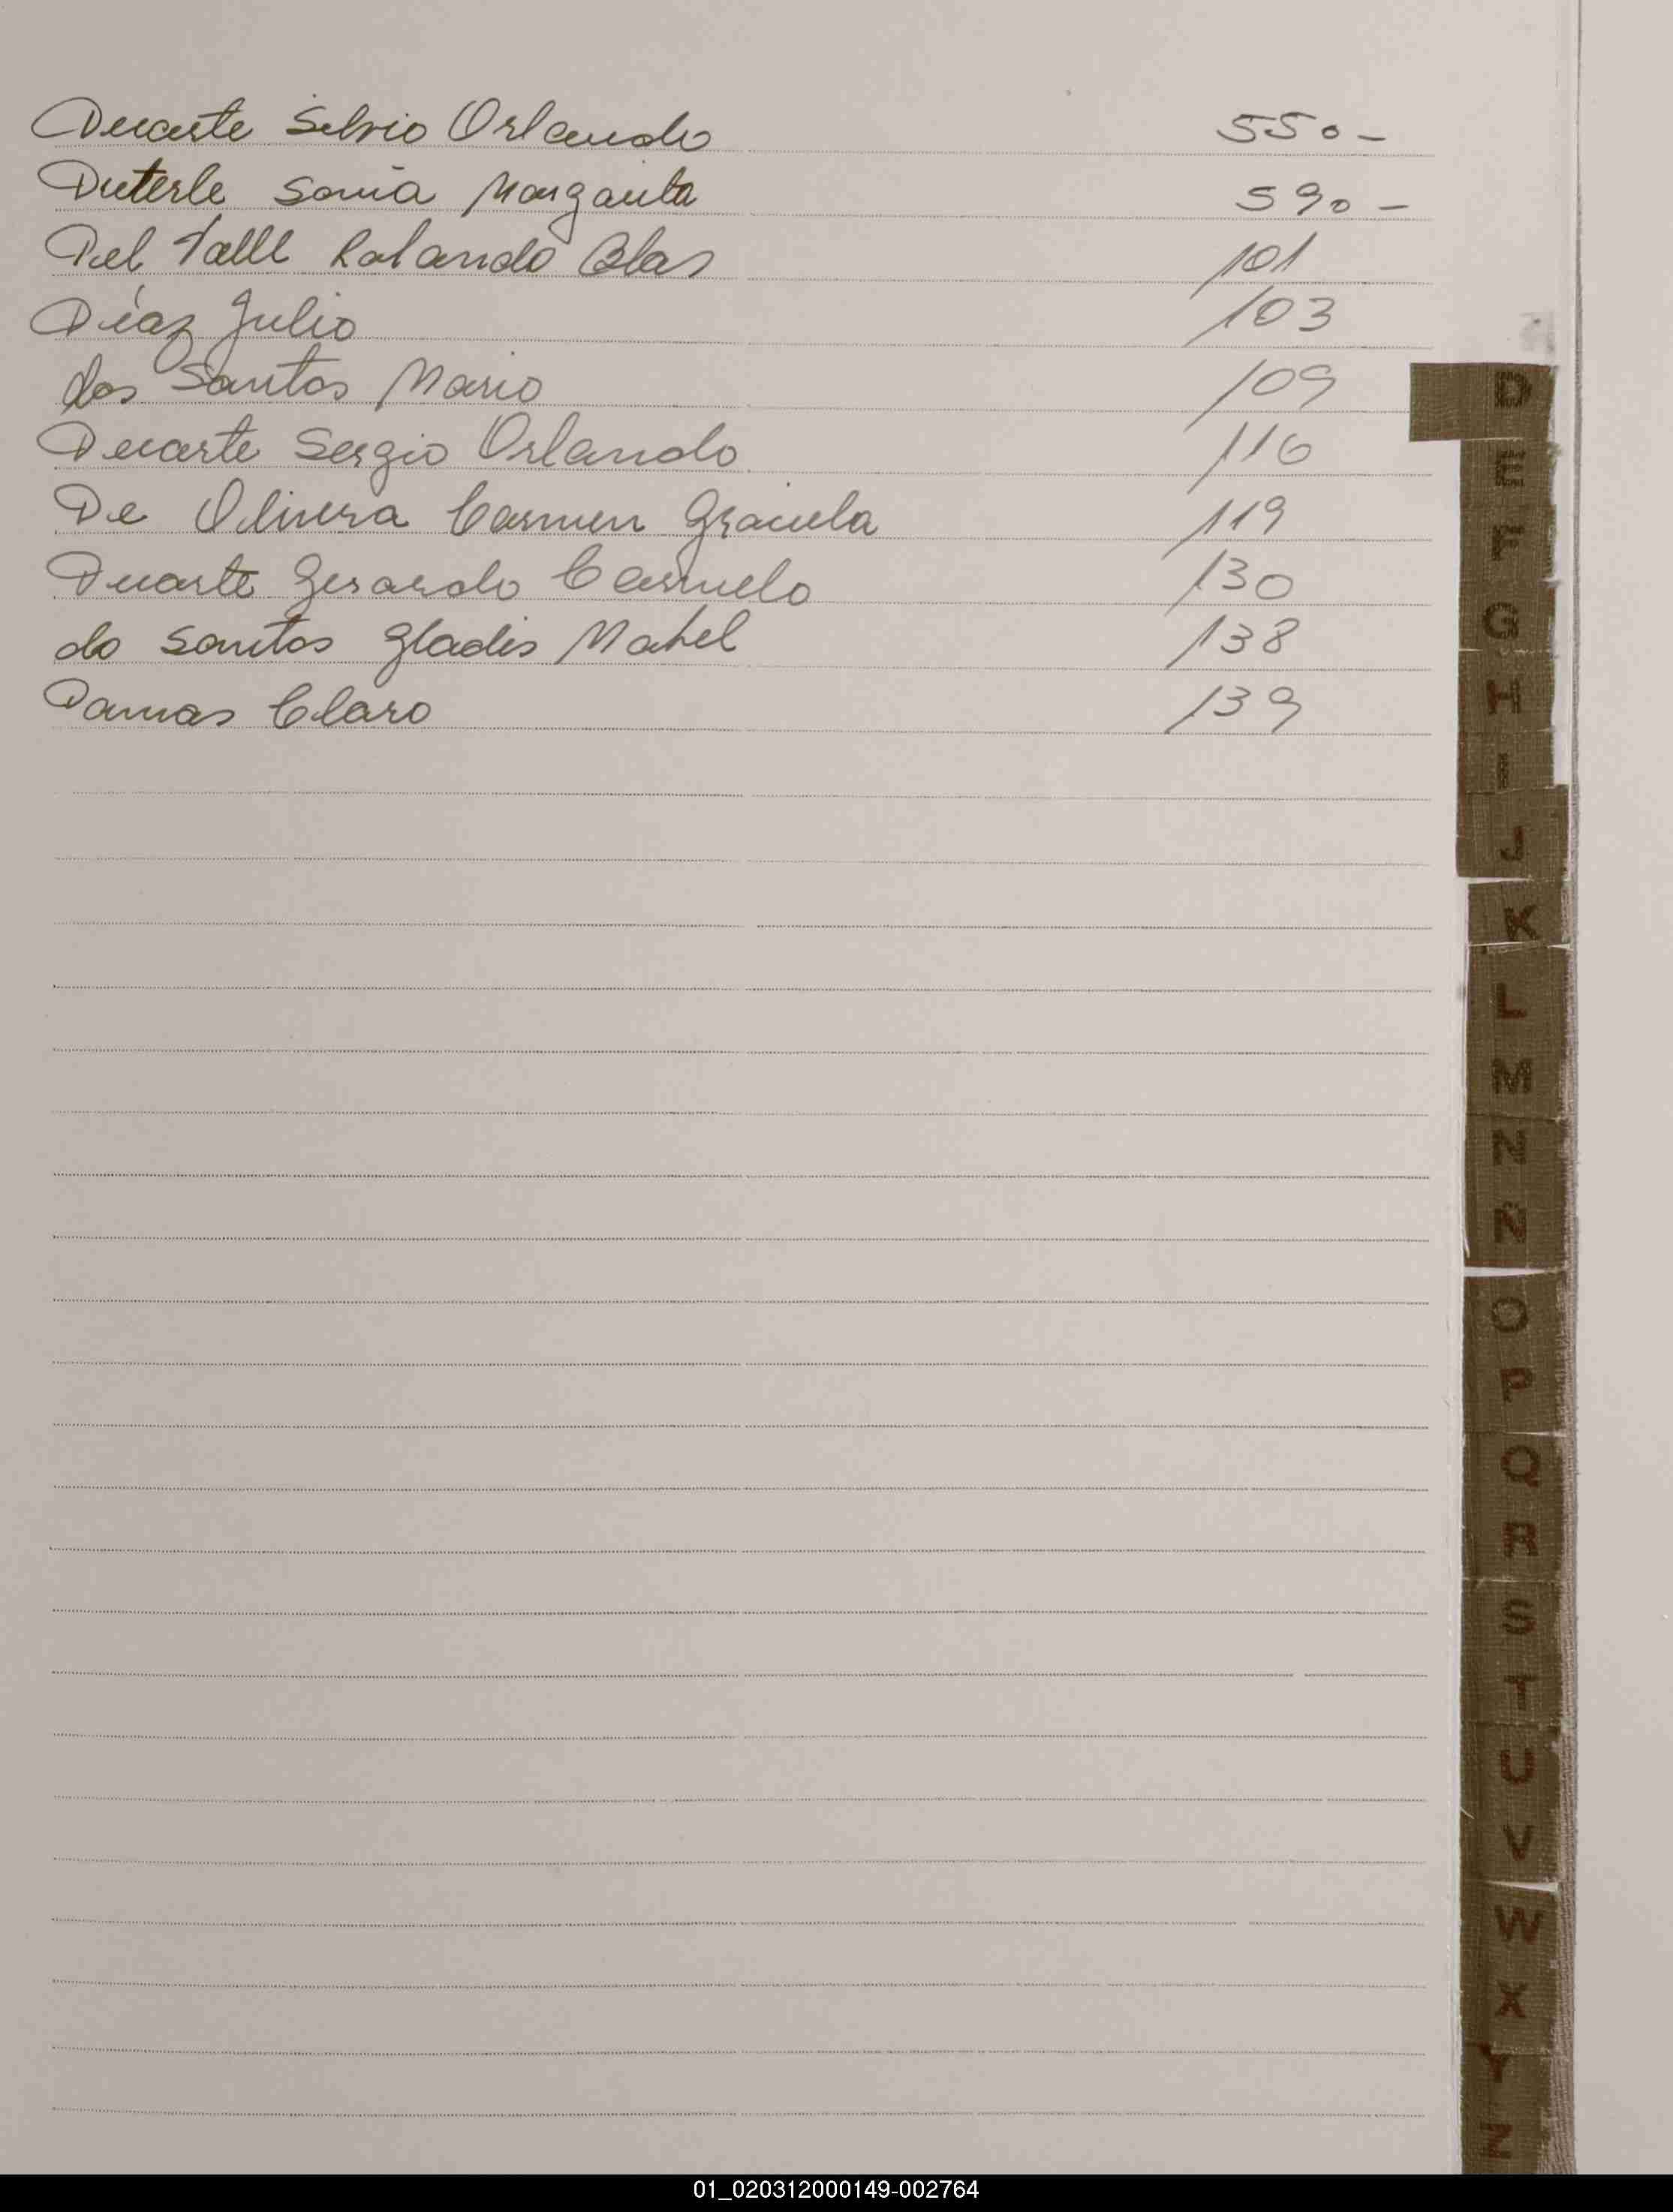 Duarte Silvio Orlando 550-
Duterle Sonia Margarita 590-
Del Valle Rolando Blas 101
Díaz Julio 103
dos Santos Mario 109
Duarte Sergio Orlando 116
De Olivera Carmen Graciela 119
Duarte Gerardo Carmelo 130
do Santos Gladis Mabel 138
Damas Claro 139
D
E
F
G
H
I
J
K
L
M
N
Ñ
O
P
Q
R
S
T
U
V
W
X
Y
Z
01_020312000149-002764